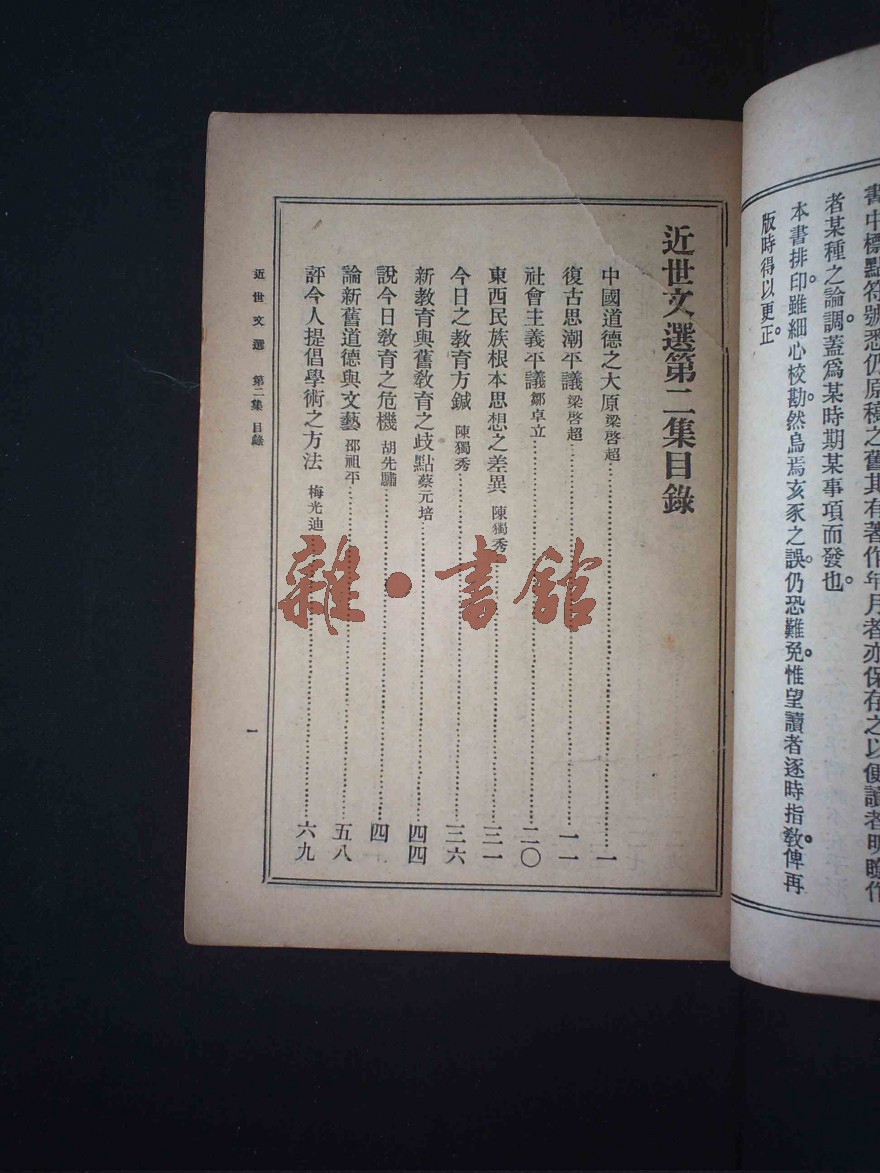 書中標點符號悉仍原稿之舊其有著作年月者亦保存之以便讀者明瞭作
者某種之論調。蓋爲某時期某事項而發也。
本書排印。雖細心校勘。然烏焉亥豕之誤。仍恐難免。惟望讀者逐時指敎。俾再
版時得以更正。
近世文選第二集目錄
中國道德之大原 梁啓超 一
復古思潮平議 梁啓超 一一
社會主義平議 鄒卓立 二〇
東西民族根本思想之差異 陳獨秀 三一
今日之敎育方鍼 陳獨秀 三六
新敎育與舊敎育之歧點 蔡元培 四四
說今日敎育之危機 胡先驌 四
論新舊道德與文藝 邵祖平 五八
評今人提倡學術之方法 梅光迪 六九
近世文選 第二集 目錄
一
雜·書館